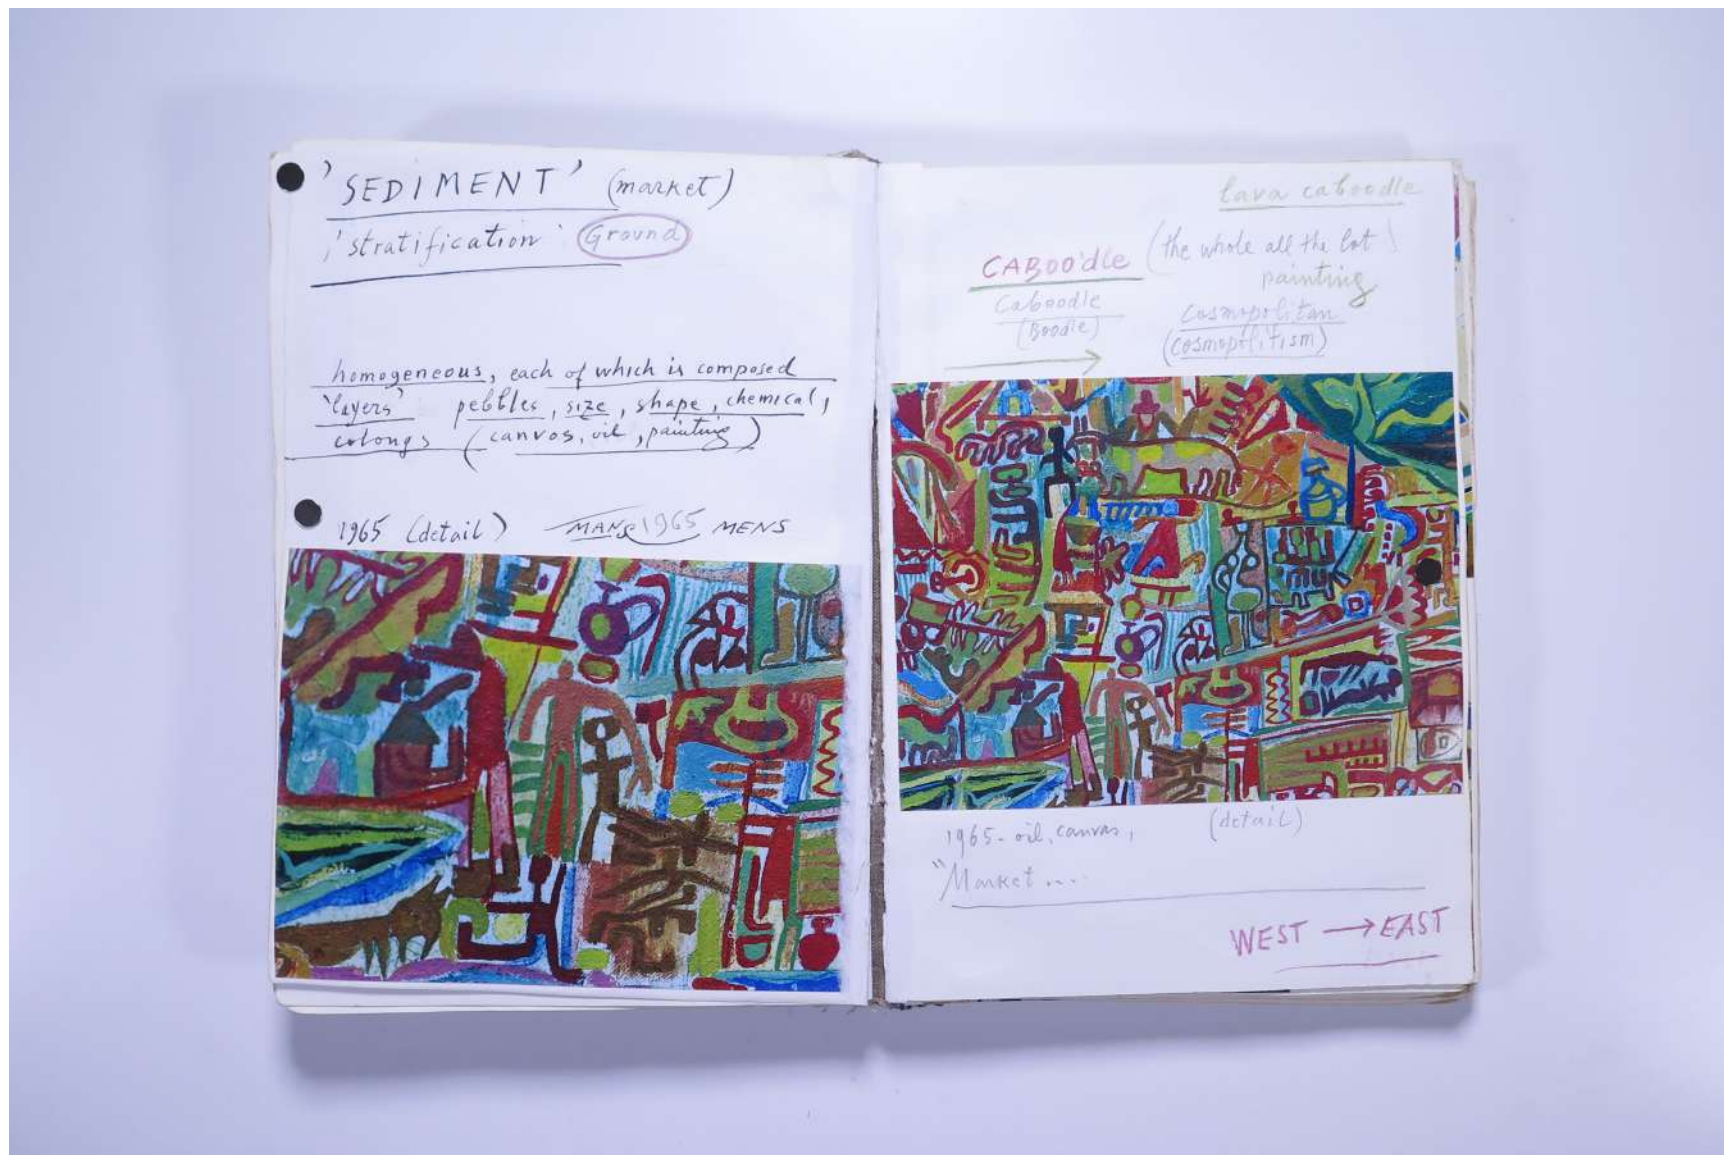 'SEDIMENT' (market)
'stratification' Ground
homogeneous, each of which is composed
'layers' pebbles, size, shape, chemical,
(canvos, oil, painting)
1965 (detail) MANS 1965 MENS
lava caboodle
CABOO'dle (the whole all the lot)
painting
Caboodle
(Boodle)
cosmopolitan
(cosmopolitism)
1965 - oil, canvas, (detail)
"Market ....
WEST → EAST